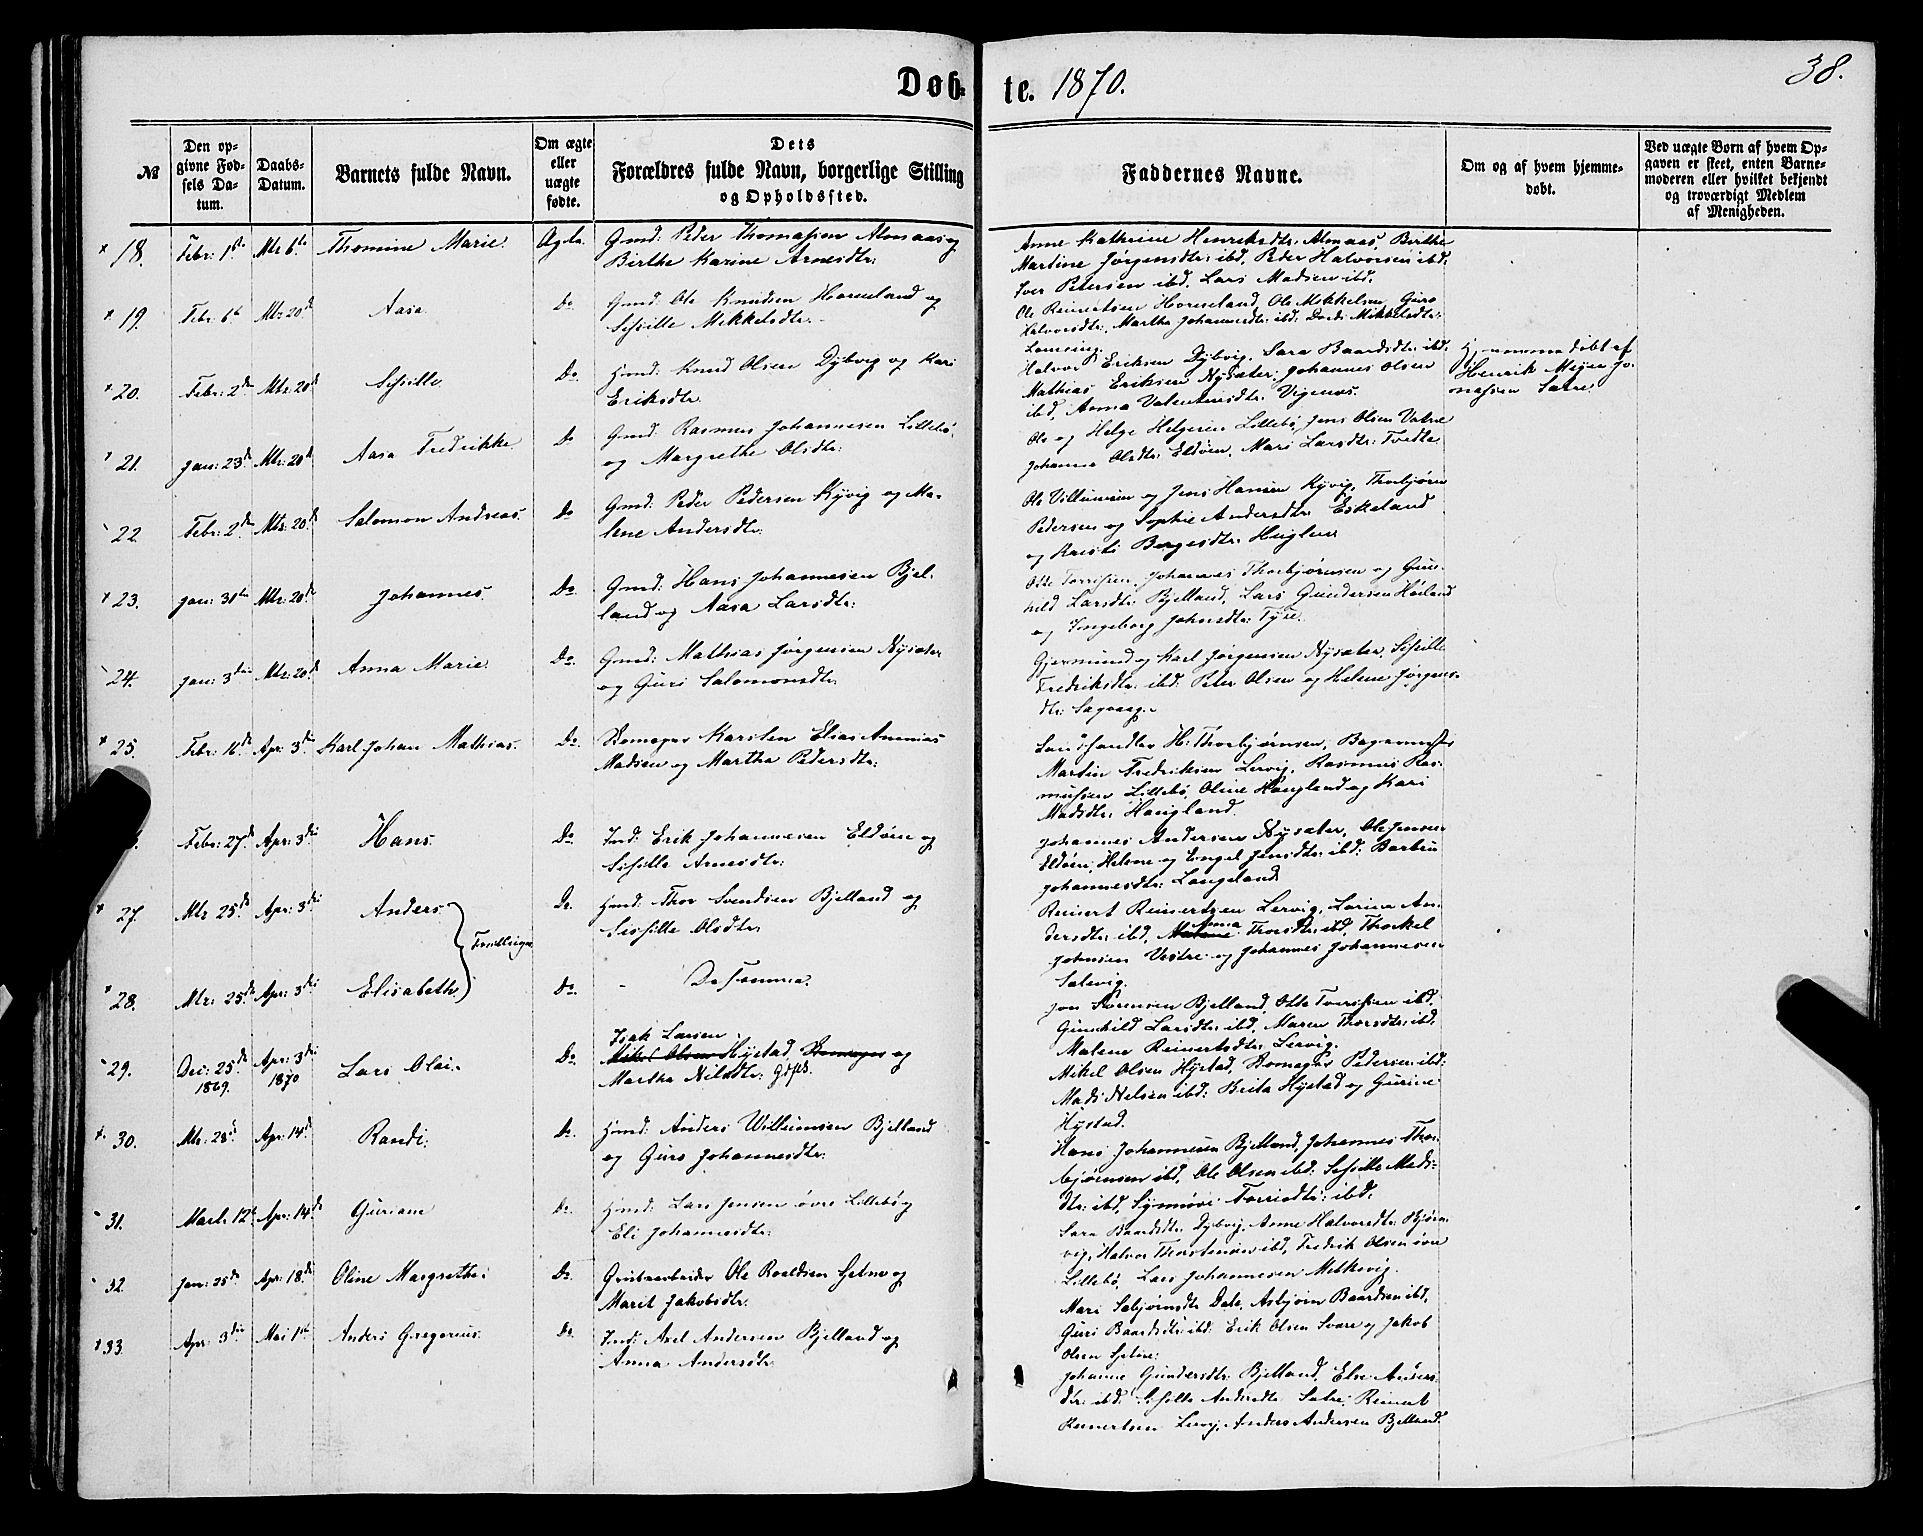 Døb-
te. 1870.
38.
№
Den op-
givne Fød-
sels Da-
tum.
Daabs-
Datum.
Barnets fulde Navn.
Om ægte
eller
uægte
fødte.
Dets
Forældres fulde Navn, borgerlige Stilling
og Opholdssted.
Faddernes Navne.
Om og af hvem hjemme-
døbt.
Ved uægte Børn af hvem Op-
gaven er skeet, enten Barne-
moderen eller hvilket bekjendt
og troværdigt Medlem
af Menigheden.
18. Febr: 1ste Mts 6te Thomine Marie. Ægte. Gmd: Peder Thomassen Almaas og
Birthe Karine Arnesdtr:
Anne Kathrine Henriksdtr: Almaas, Birthe
Martine Jørgensdtr: ibd, Peder Halvorsen ibd,
Iver Petersen ibd, Lars Madsen ibd.
19. Febr: 6te Mts 20de Aasa Do Gmd: Ole Knudsen Horneland og
Sessille Mikkelsdtr:
Ole Reinertsen Horneland, Ole Mikkelsen, Guro
Halvorsdtr:, Martha Johannesdtr: ibd: Mikkelsdtr:
20. Febr: 2den Mts: 20de Sessille Do Hmd: Knud Olsen Dybvig og Kari
Eriksdtr.
Halvor Eriksen Dybvig, Sara Baardsdtr: ibd.
Mathias Eriksen Nysæter, Johannes Olsen
ibd, Anna Valentinsdtr: Vigenes.
Hjemmedøbt af
Henrik Meyer Jo-
nassen Sætre.
21. Jan: 23de Mts: 20de Aasa Fredrikke. Do Gmd: Rasmus Johannesen Lillebø,
og Margrethe Olsdtr:
Ole og Helge Helgesen Lillebø, Jens Olsen Valvæ
Johanna Olsdtr: Eldøen, Mari Larsdtr: Tvedte
22. Febr: 2den Mts: 20de Salomon Andreas. Do Gmd: Peder Pedersen Kyvig og Ma-
lene Andersdtr:
Ole Villumsen og Jens Hansen Kyvig, Thorbjørn
Pedersen og Sophie Andersdtr: Eskeland
og Kristi Børgesdtr: Huglen
23. Jan: 31te Mts: 20de Johannes. Do Gmd: Hans Johannesen Bjel-
land og Aasa Larsdtr:
Otte Torrissen, Johannes Thorbjørnsen og Gun-
hild Larsdtr: Bjelland, Lars Gundersen Høiland
og Ingeborg Johnsdtr: Tyse.
24. Jan: 3die Mts: 20de Anna Marie. Do Gmd: Mathias Jørgensen Nysæter
og Guri Salomonsdtr:
Gjermund og Karl Jørgensen Nysæter, Sessille
Fredriksdtr: ibd: Peter Olsen og Helene Jørgens-
dtr: Sagvaag.
25. Febr: 16de Apr: 3die Karl Johan Mathias. Do Skomager Karsten Elias Ananias
Madsen og Martha Pedersdtr:
Landhandler H: Thorbjørnsen, Bagermester
Martin Fredriksen Lervig, Rasmus Ras-
mussen Lillebø, Oline Haugland og Kari
Madsdtr: Haugland.
Febr: 27de Apr: 3die Hans. Do Ind: Erik Johannesen Eldøen og
Sessille Arnesdtr:
Johannes Andersen Nysæter, Ole Jensen
Eldøen, Helene og Engel Jensdtr: ibd: Barbru
Johannesdtr: Langeland
27. Mts 25de Apr: 3die Anders Tvillinger Do Hmd: Thor Svendsen Bjelland og
Sissille Olsdtr:
Reinert Reinertsen Lervig, Larina An-
dersdtr: ibd, Malene Anna Thorsdtr: ibd, Thorkel
Johnsen Vestre og Johannes Johannesen
Sakvig.
28. Mts: 25de Apr: 3die Elisabeth. Do - De samme.
Jon Sørensen Bjelland, Otte Torrissen ibd,
Gunhild Larsdtr: ibd, Maren Thorsdtr: ibd,
Malene Reinertsdtr: Lervig.
29. Dec: 25de 1869. Apr: 3die 1870 Lars Olai. Do Isak Larsen
Mikel Olsen Hystad, Skomager og
Martha Nilsdtr: Gdfst.
Mikel Olsen Hystad, Skomager Pedersen ibd:
Mads Nilsen ibd: Brita Hystad og Gurine
Hystad.
30. Mts: 28de Apr: 14de Randi. Do Hmd: Anders Willumsen Bjelland
og Guro Johannesdtr:
Hans Johannesen Bjelland, Johannes Thor-
bjørnsen ibd, Ole Olsen ibd: Sessille Mads-
dtr: ibd, Synnøve Torrisdtr: ibd,
31. Marts 12te Apr: 14de Guriane Do Hmd: Lars Jensen øvre Lillebø og
Eli Johannesdtr:
Sara Baardsdtr: Dybvig, Anne Halvorsdtr: Bjørn-
vig, Halvor Thorstensen ibd, Fredrik Olsen øvre
Lillebø, Lars Johannesen Melkevig.
32. Jan: 25de Apr: 18de Oline Margrethe. Do Grubearbeider Ole Roaldsen Sætre og
Marit Jakobsdtr.
Mari Asbjørnsdtr Dale, Asbjørn Baardsen ibd,
Guri Baardsdtr: ibd: Erik Olsen Svare og Jakob
Olsen
33. Apr: 3die Mai 1ste Anders Gregorius. Do Ind: Axel Andersen Bjelland og
Anna Andersdtr.
Johanne Gundersdtr: Bjelland, Else Anders-
dtr: ibd: Sissille Andersdtr Sætre, Reinert
Reinertsen Lervig, Anders Andersen Bjelland.